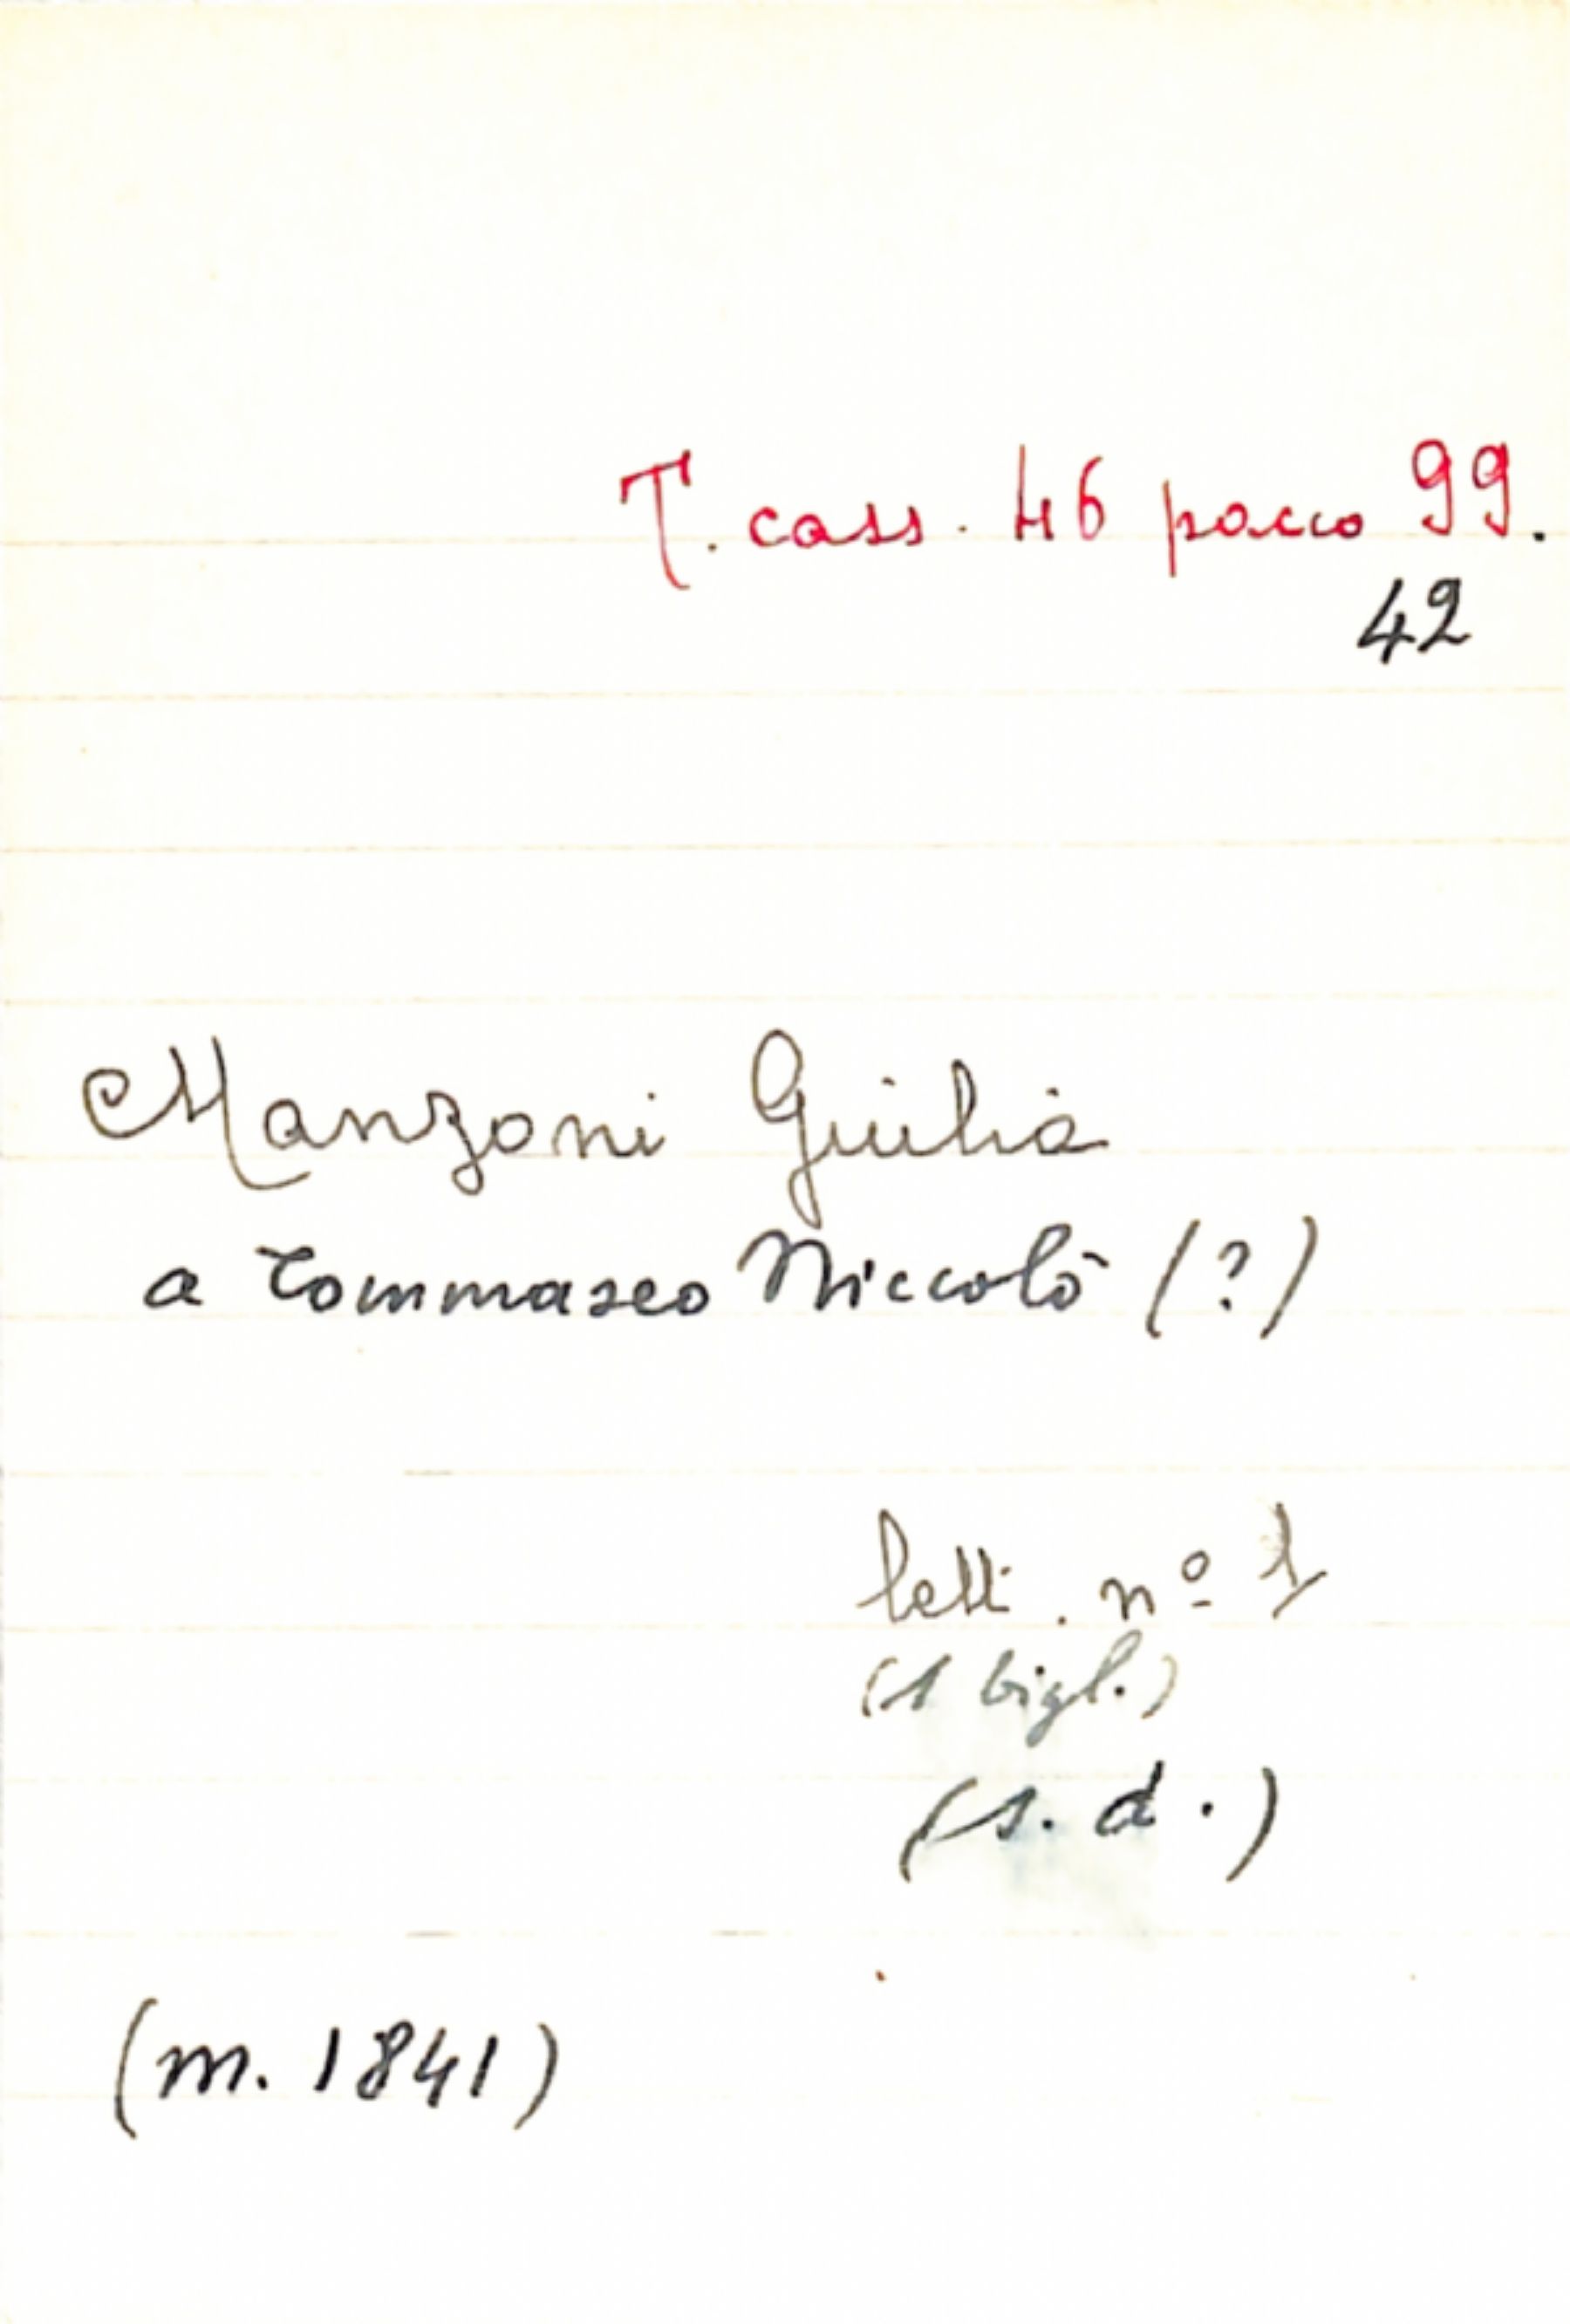 T. cass. 46 pacco 99.
42
Manzoni Giulia
a Tommaseo Niccolò (?)
lett. nº 1
(1 bigl.)
(s. d.)
(m. 1841)